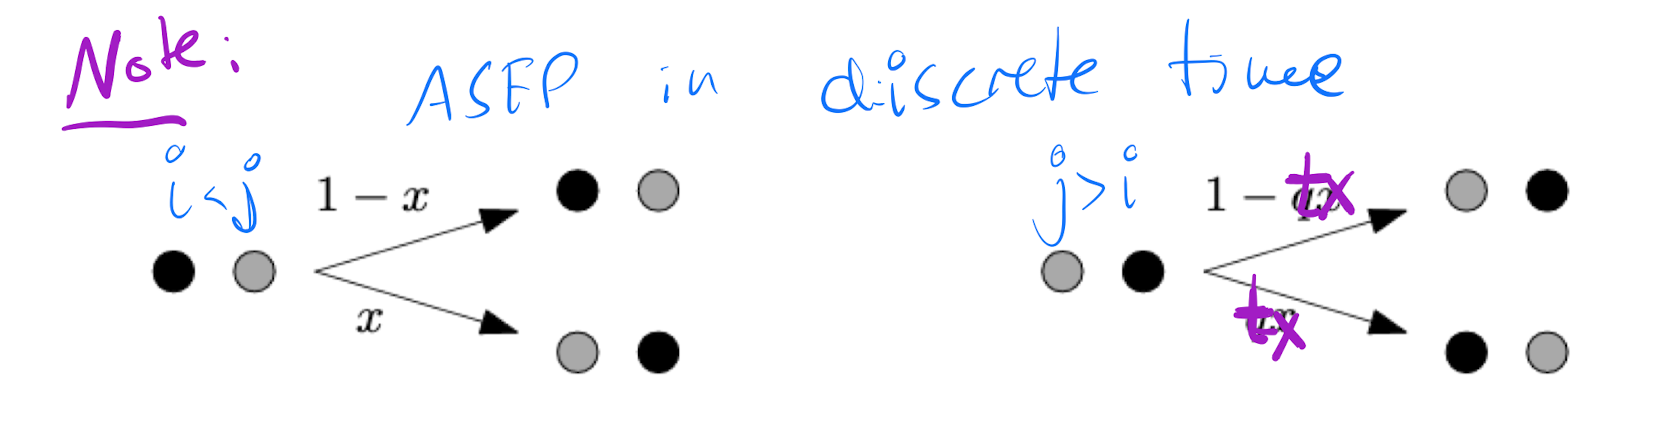 Note: ASEP in discrete time
i<j 1 − x j>i 1 − tx
x tx